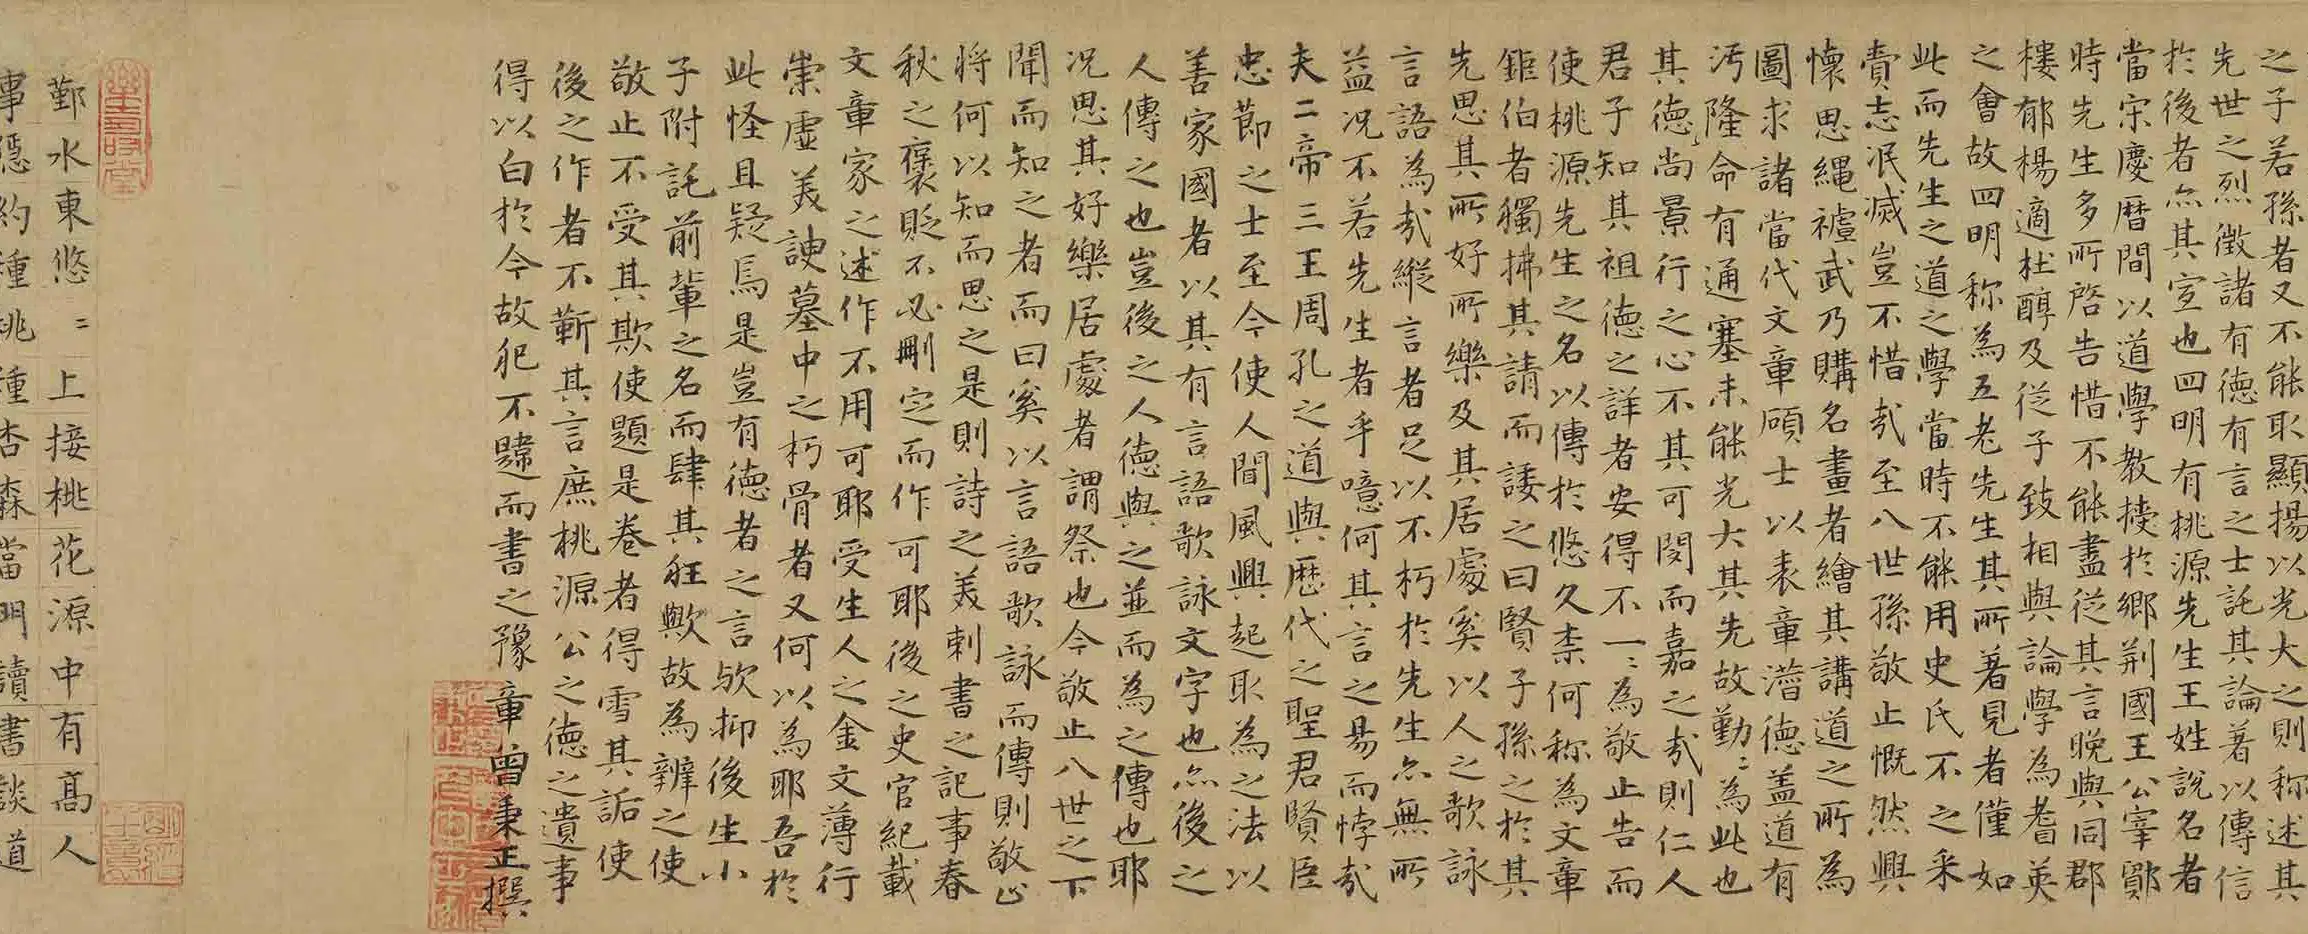 之子若孫者又不能取顯揚以光大之則称述其
先世之烈徵諸有德有言之士託其論著以傳信
於後者亦其宜也四明有桃源先生王姓說名者
當宋慶曆間以道學教授於鄉荊國王公宰鄞
時先生多所啓告惜不能盡從其言晚與同郡
樓郁楊適杜醇及從子致相與論學為耆英
之會故四明称為五老先生其所著見者僅如
此而先生之道之學當時不能用史氏不之采
賫志泯滅豈不惜哉至八世孫敬止慨然興
懷思繩祖武乃購名畫者繪其講道之所為
圖求諸當代文章碩士以表章潛德盖道有
汚隆命有通塞未能光大其先故勤〻為此也
其德尚景行之心不其可閔而嘉之哉則仁人
君子知其祖德之詳者安得不一〻為敬止告而
使桃源先生之名以傳於悠久柰何称為文章
鉅伯者獨拂其請而諉之曰賢子孫之於其
先思其所好所樂及其居處奚以人之歌詠
言語為哉縱言者足以不朽於先生亦無所
益况不若先生者乎噫何其言之易而悖哉
夫二帝三王周孔之道與歷代之聖君賢臣
忠節之士至今使人間風興起取為之法以
善家國者以其有言語歌詠文字也亦後之
人傳之也豈後之人德與之並而為之傳也耶
况思其好樂居處者謂祭也今敬止八世之下
聞而知之者而曰奚以言語歌詠而傳則敬止
將何以知而思之是則詩之美刺書之記事春
秋之襃貶不必刪定而作可耶後之史官紀載
文章家之述作不用可耶受生人之金文薄行
崇虛美諛墓中之朽骨者又何以為耶吾於
此怪且疑焉是豈有德者之言歟抑後生小
子附託前輩之名而肆其狂歟故為辨之使
敬止不受其欺使題是卷者得雪其詬使
後之作者不蘄其言庶桃源公之德之遺事
得以白於今故犯不韙而書之豫章曾秉正撰
鄞水東悠〻上接桃花源中有高人
事隱約種桃種杏森當門讀書談道